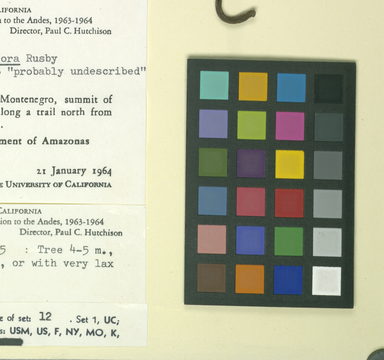 LIFORNIA
on to the Andes, 1963-1964
Director, Paul C. Hutchison
ora Rusby
"probably undescribed"
Montenegro, summit of
long a trail north from
ment of Amazonas
21 January 1964
E UNIVERSITY OF CALIFORNIA
CALIFORNIA
ion to the Andes, 1963-1964
Director, Paul C. Hutchison
5 : Tree 4-5 m.,
, or with very lax
e of set: 12 . Set 1, UC;
s: USM, US, F, NY, MO, K,